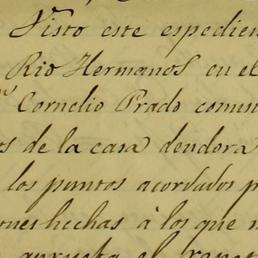 Visto este espedien
Rio Hermanos en el
Cornelio Prado comun
os de la casa deudora
los puntos acordados p
ones hechas à los que